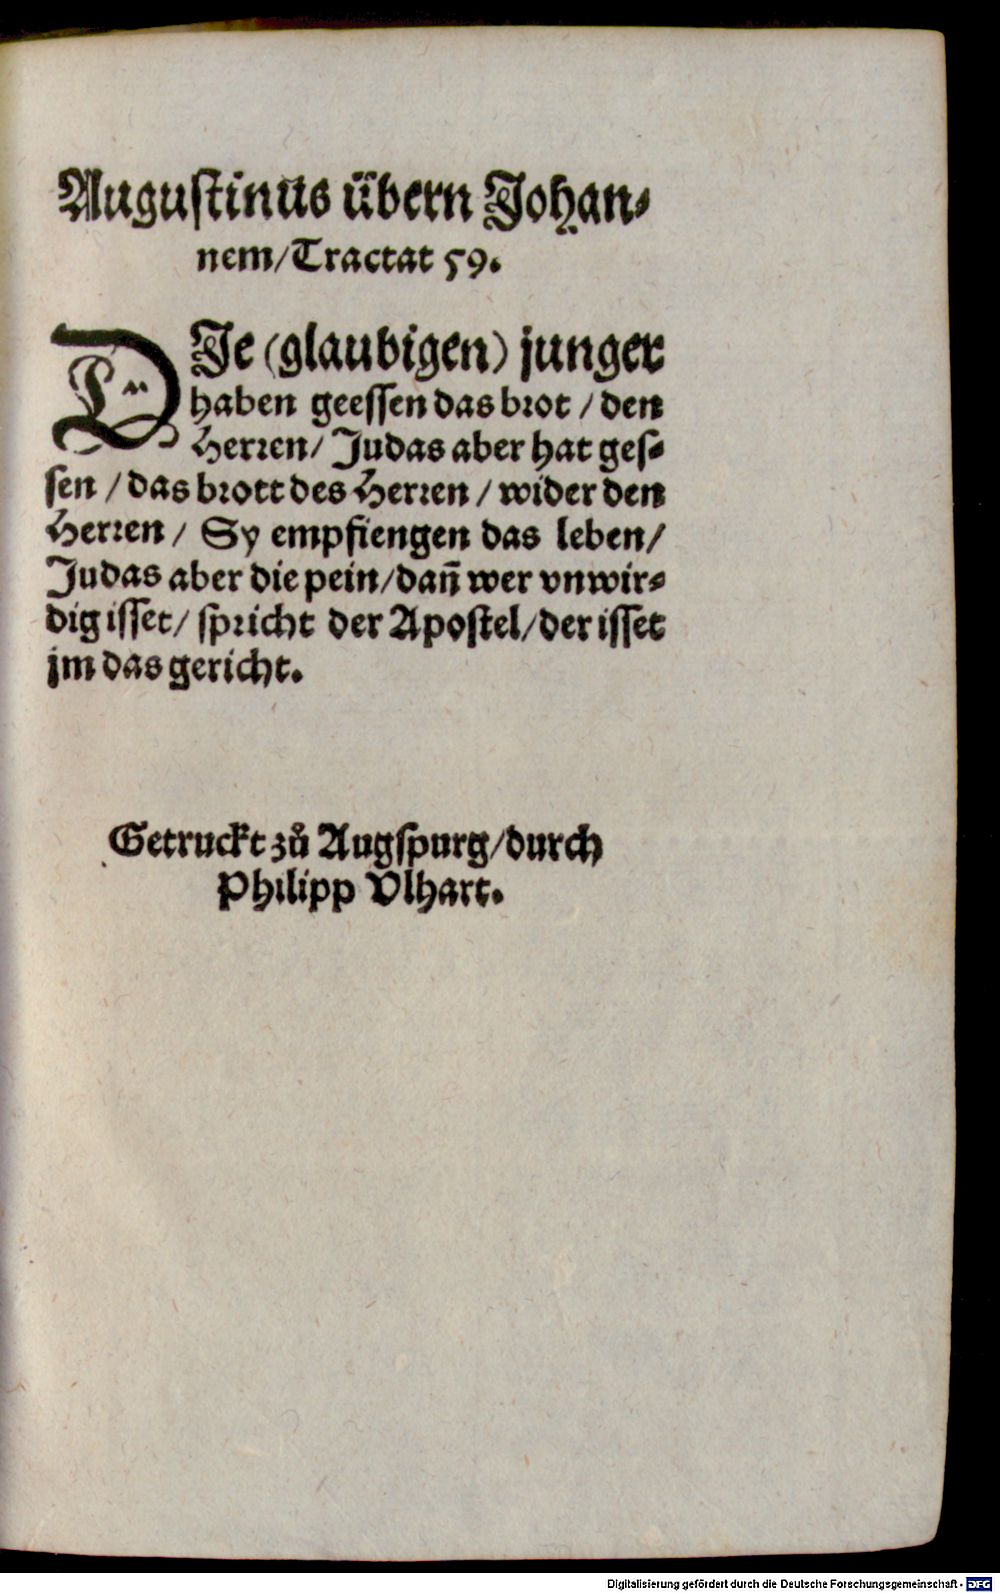 Augustinus übern Johan-
nem/Tractat 59.
DJe (glaubigen) junger
haben geessen das brot / den
Herren/ Judas aber hat ges-
sen / das brott des Herren / wider den
Herren / Sy empfiengen das leben/
Judas aber die pein/dañ wer vnwir-
dig isset/ spricht der Apostel/der isset
jm das gericht.
Getruckt zů Augspurg/durch
Philipp Vlhart.
Digitalisierung gefördert durch die Deutsche Forschungsgemeinschaft - DFG